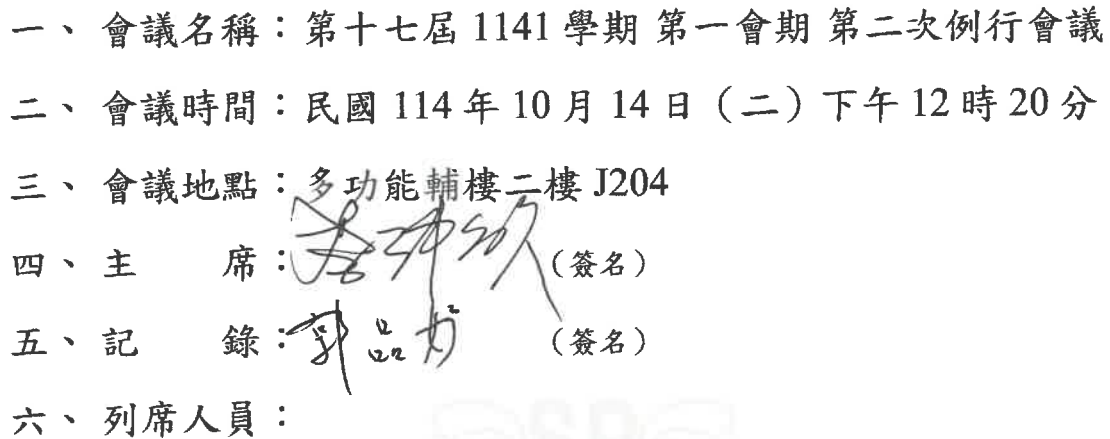 一、 會議名稱：第十七屆 1141 學期 第一會期 第二次例行會議
二、 會議時間：民國 114 年 10 月 14 日（二）下午 12 時 20 分
三、 會議地點：多功能輔樓二樓 J204
四、 主　　席：（簽名）
五、 記　　錄：郭品（簽名）
六、 列席人員：